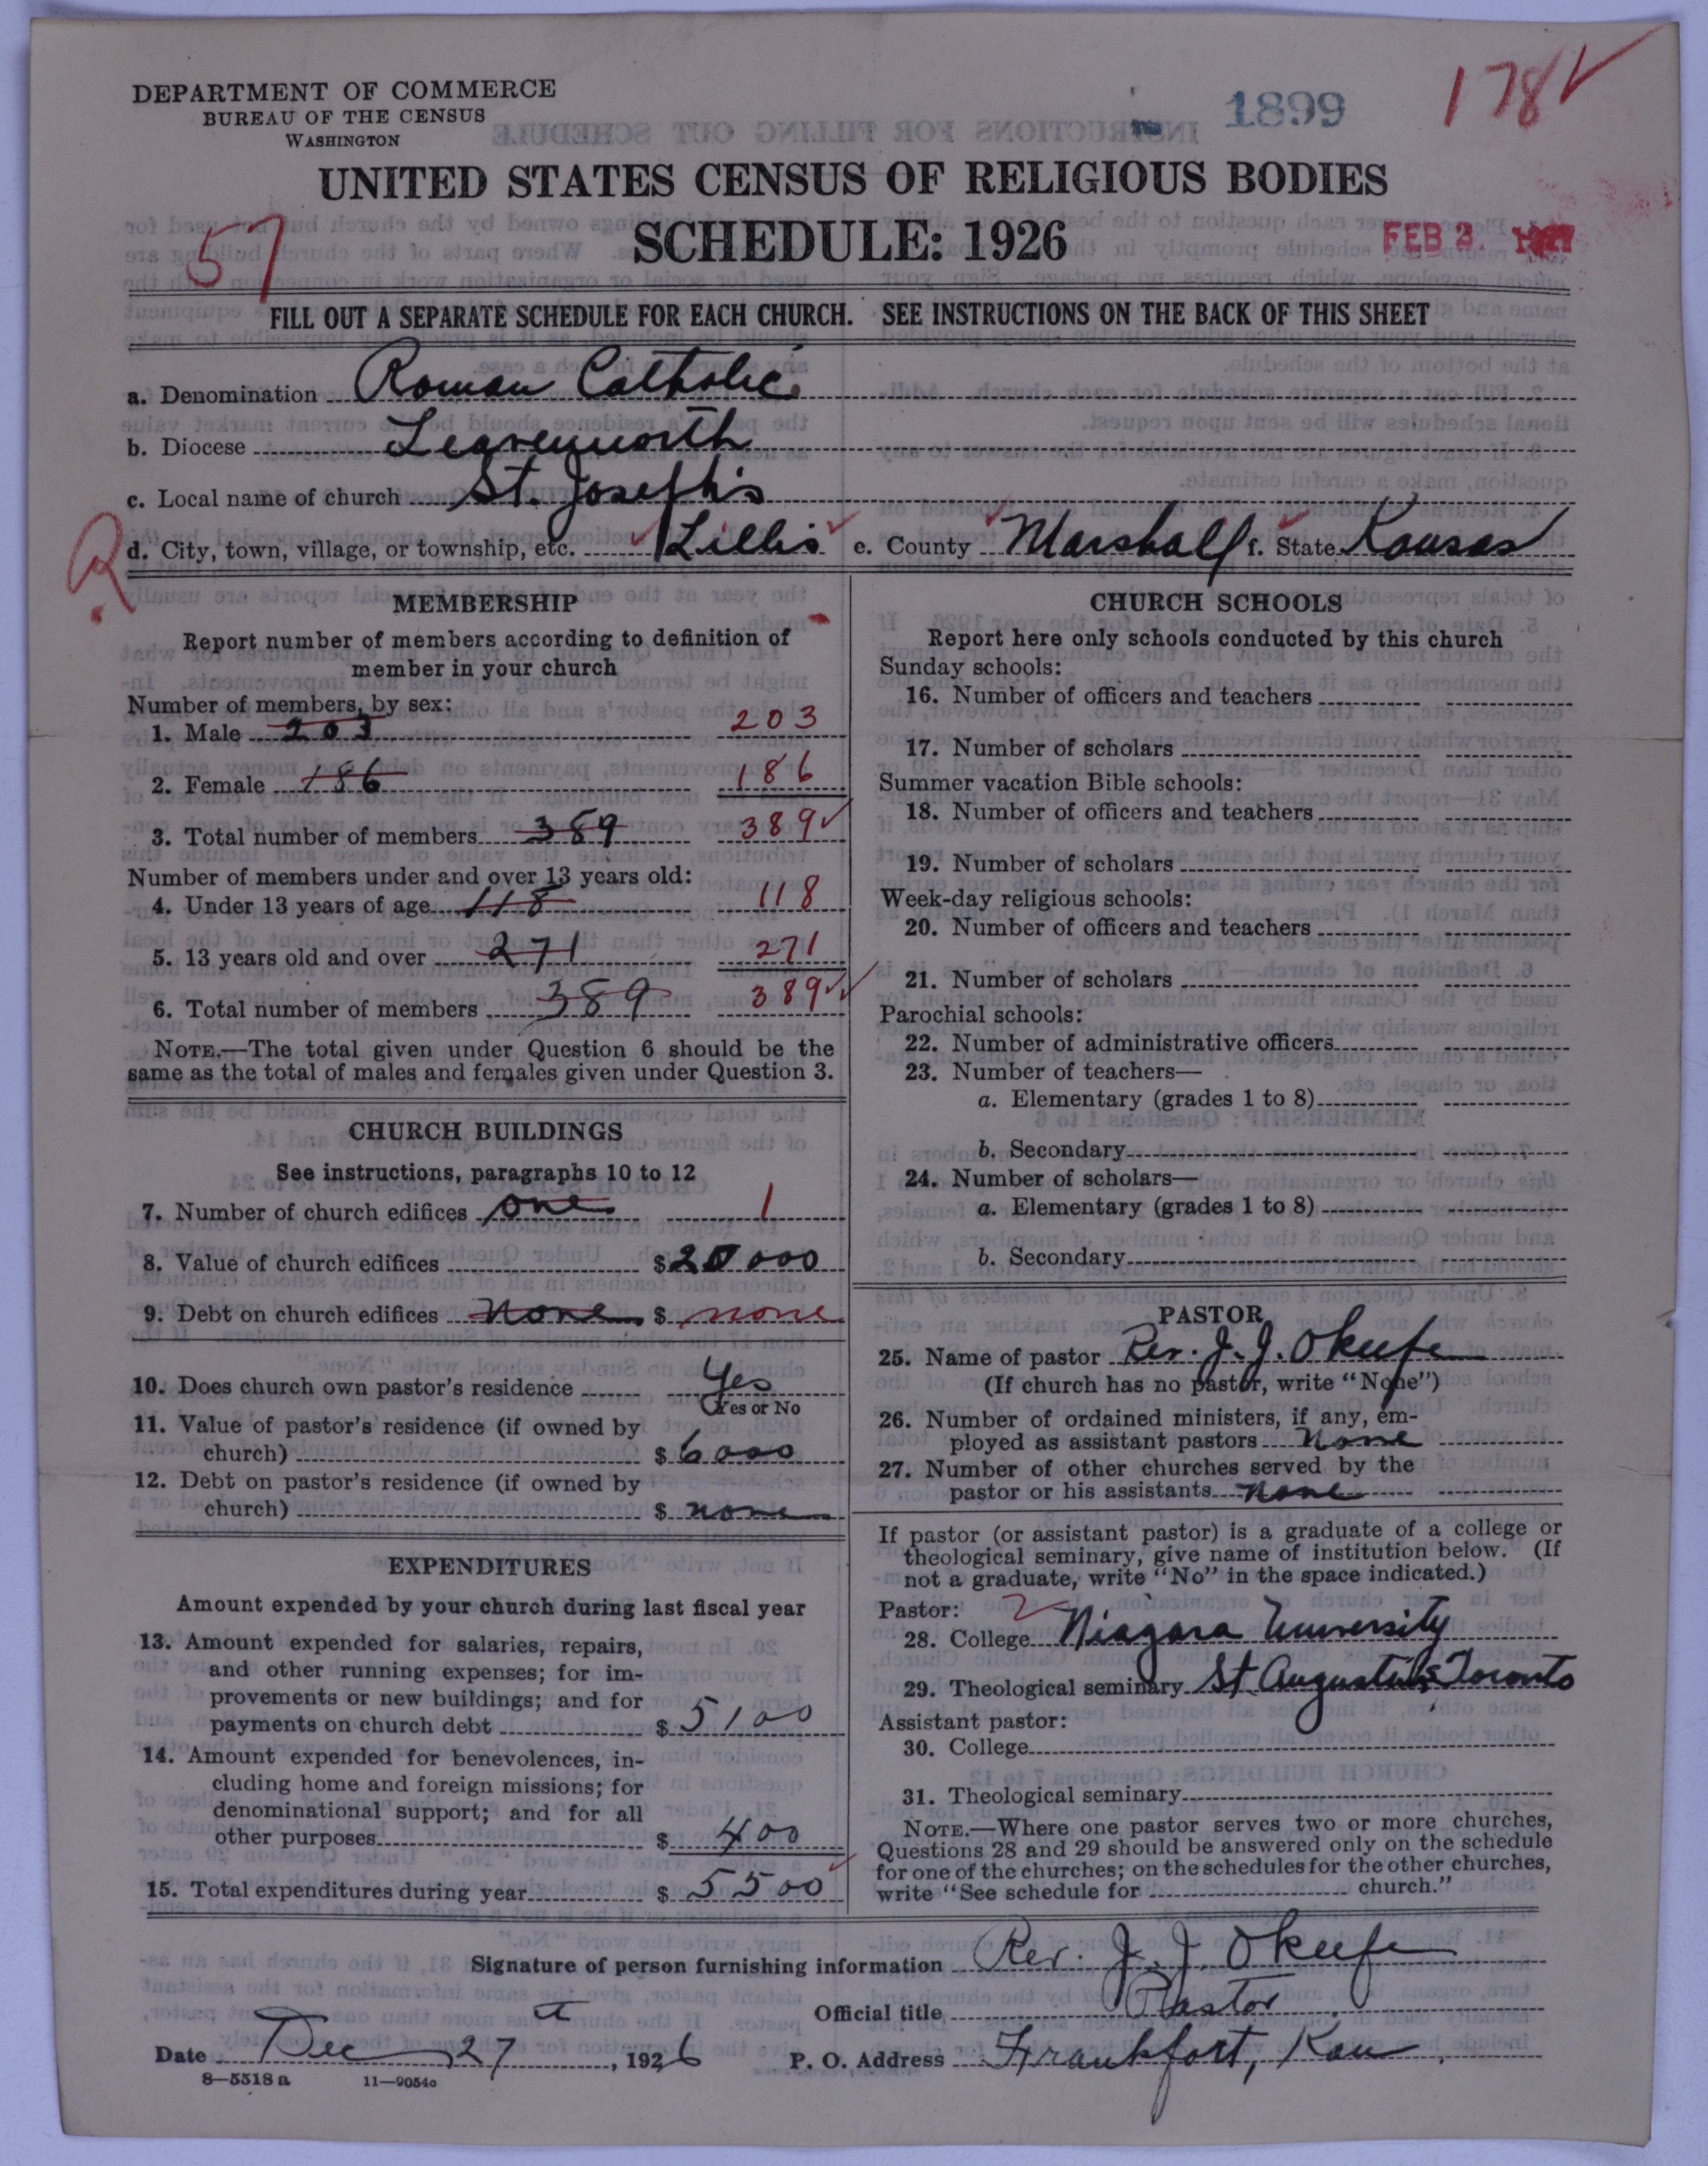 DEPARTMENT OF COMMERCE
BUREAU OF THE CENSUS
WASHINGTON
1899
178
UNITED STATES CENSUS OF RELIGIOUS BODIES
SCHEDULE: 1926
57
FEB 3. 1927
FILL OUT A SEPARATE SCHEDULE FOR EACH CHURCH. SEE INSTRUCTIONS ON THE BACK OF THIS SHEET
a. Denomination Roman Catholic
b. Diocese Leavenworth
c. Local name of church St. Joseph's
R
d. City, town, village, or township, etc. Lillis e. County Marshall f. State Kansas
MEMBERSHIP
Report number of members according to definition of
member in your church
Number of members, by sex:
1. Male 203 203
2. Female 186 186
3. Total number of members 389 389
Number of members under and over 13 years old:
4. Under 13 years of age 118 118
5. 13 years old and over 271 271
6. Total number of members 389 389
NOTE.—The total given under Question 6 should be the
same as the total of males and females given under Question 3.
CHURCH BUILDINGS
See instructions, paragraphs 10 to 12
7. Number of church edifices one 1
8. Value of church edifices $20000
9. Debt on church edifices none $ none
10. Does church own pastor's residence Yes
Yes or No
11. Value of pastor's residence (if owned by
church) $ 6000
12. Debt on pastor's residence (if owned by
church) $ none
EXPENDITURES
Amount expended by your church during last fiscal year
13. Amount expended for salaries, repairs,
and other running expenses; for im-
provements or new buildings; and for
payments on church debt $ 5100
14. Amount expended for benevolences, in-
cluding home and foreign missions; for
denominational support; and for all
other purposes $ 400
15. Total expenditures during year $ 5500
CHURCH SCHOOLS
Report here only schools conducted by this church
Sunday schools:
16. Number of officers and teachers
17. Number of scholars
Summer vacation Bible schools:
18. Number of officers and teachers
19. Number of scholars
Week-day religious schools:
20. Number of officers and teachers
21. Number of scholars
Parochial schools:
22. Number of administrative officers
23. Number of teachers—
a. Elementary (grades 1 to 8)
b. Secondary
24. Number of scholars—
a. Elementary (grades 1 to 8)
b. Secondary
PASTOR
25. Name of pastor Rev. J. J. OKeefe
(If church has no pastor, write "None")
26. Number of ordained ministers, if any, em-
ployed as assistant pastors None
27. Number of other churches served by the
pastor or his assistants None
If pastor (or assistant pastor) is a graduate of a college or
theological seminary, give name of institution below. (If
not a graduate, write "No" in the space indicated.)
Pastor: 2
28. College Niagara University
29. Theological seminary St Augustine's Toronto
Assistant pastor:
30. College
31. Theological seminary
NOTE.—Where one pastor serves two or more churches,
Questions 28 and 29 should be answered only on the schedule
for one of the churches; on the schedules for the other churches,
write "See schedule for church."
Signature of person furnishing information Rev. J. J. OKeefe
Official title Pastor
Date Dec 27th, 1926 P. O. Address Frankfort, Kan
8—5518a 11—9054c